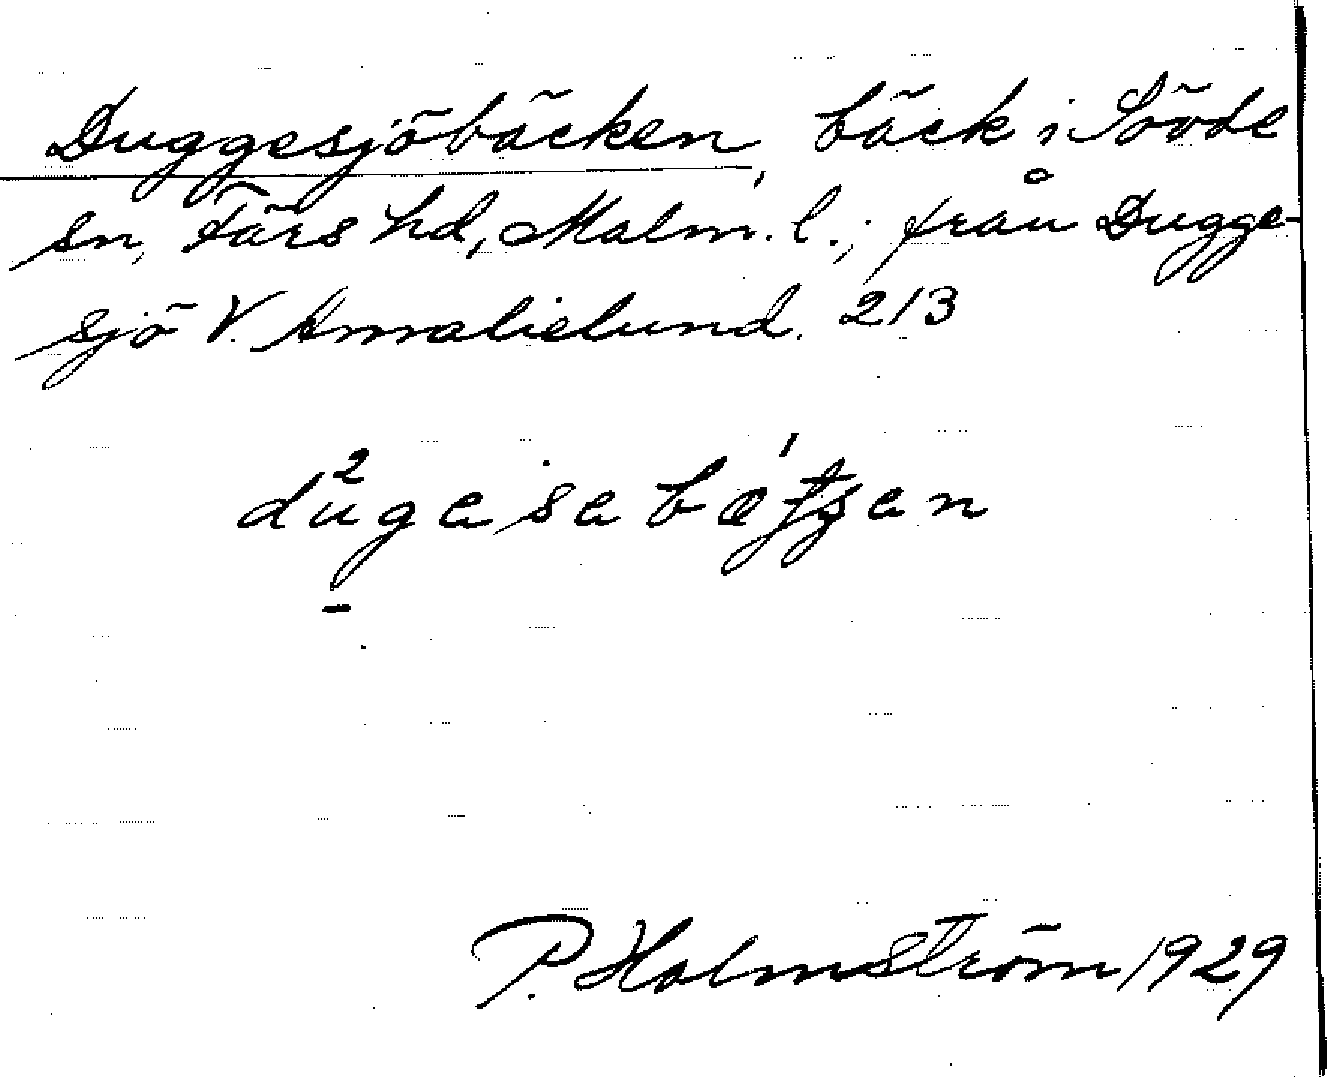 Duggesjöbäcken, bäck i Sövde
sn, Färs hd, Malm. l.; från Dugge-
sjö V. Amalielund. 213
P. Holmström 1929